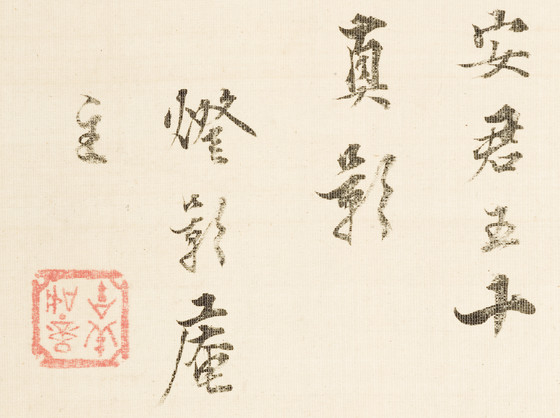 安君五十
真影
燈影庵
主